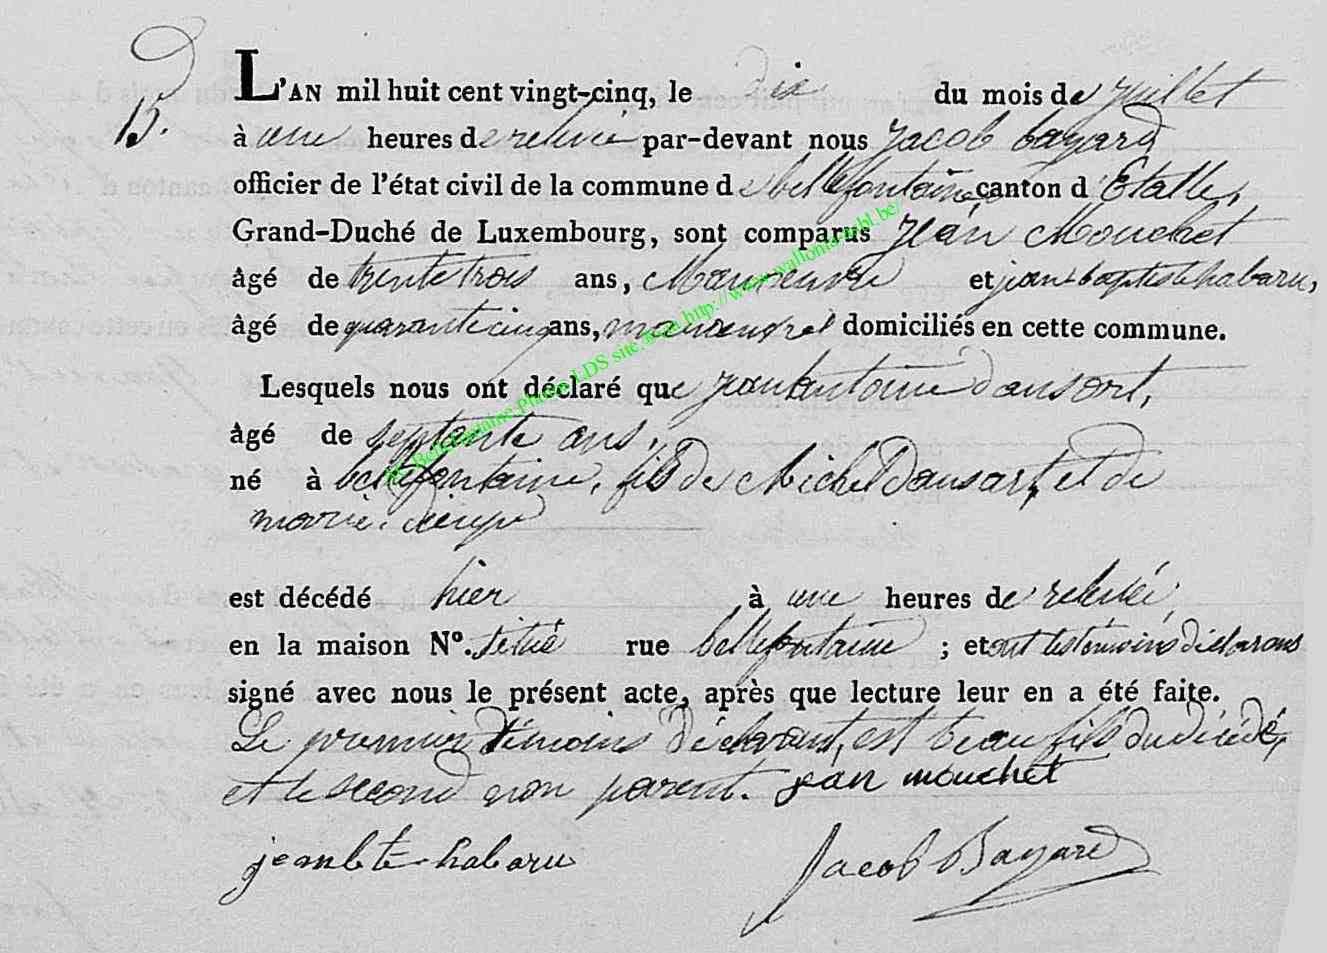 D
15.
L'AN mil huit cent vingt-cinq, le dix du mois de juillet
à une heures de relevée par-devant nous Jacob Bayard
officier de l'état civil de la commune de bellefontaine canton d'Etalle,
Grand-Duché de Luxembourg, sont comparus Jean Mouchet
âgé de trente trois ans, Manoeuvre et jean baptiste habaru,
âgé de quarante cinq ans, manoeuvre domiciliés en cette commune.
Lesquels nous ont déclaré que jean antoine dansart,
âgé de septante ans,
né à bellefontaine, fils de Michel Dansart, et de
marie
est décédé hier à une heures de relevée,
en la maison N°. située rue bellefontaine ; et ont les témoins déclarans
signé avec nous le présent acte, après que lecture leur en a été faite.
Le premier témoins déclarant, est beau fils du décédé,
et le second non parent. jean mouchet
jean bte habaru
Jacob Bayard
AC Bellefontaine Platine LDS site http://www.wallonia-mbl.be/